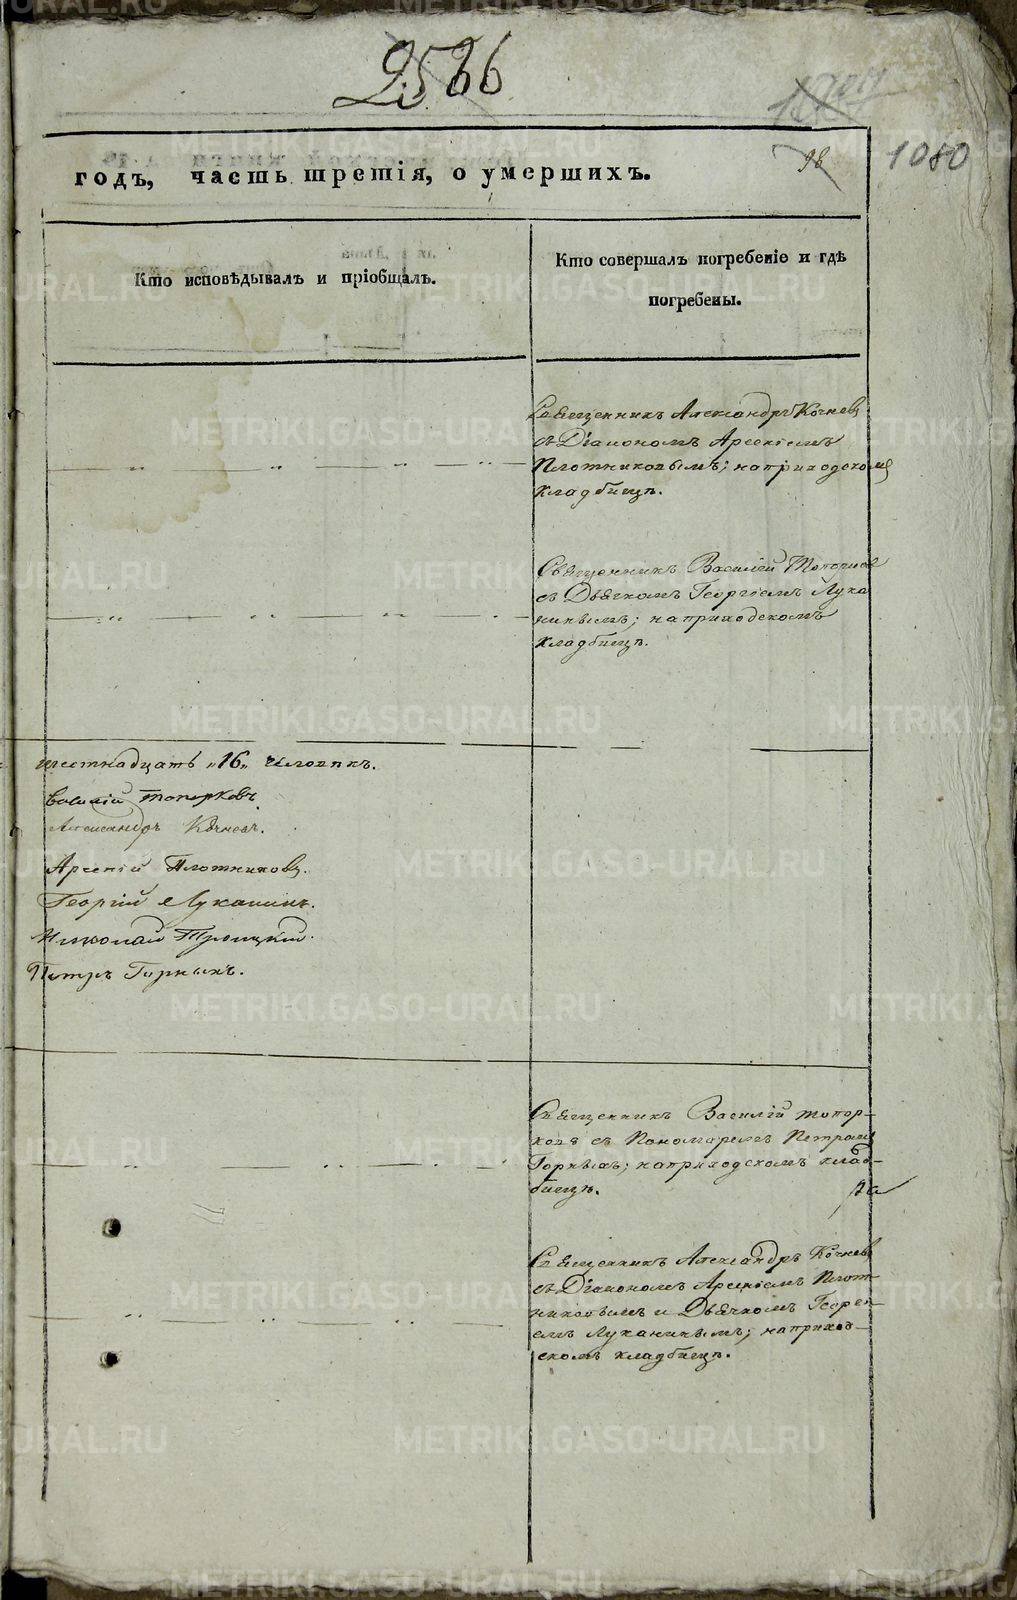 1080
98
годъ, часть третія, о умершихъ.
Кто исповѣдывалъ и пріобщалъ.
Кто совершалъ погребеніе и гдѣ
погребены.
Священникъ Александръ Кочневъ
съ Діакономъ Арсеніемъ
Плотниковымъ; на приходскомъ
кладбищѣ.
Священникъ Василій Топорковъ
съ Дьячкомъ Георгіемъ Лука
нинымъ; на приходскомъ
кладбищѣ.
шестнадцать „16„ человѣкъ.
Василій Топорковъ.
Александръ Кочневъ.
Арсеній Плотниковъ.
Георгій Луканинъ.
Николай Троицкій.
Петръ Горныхъ.
Священникъ Василій Топор-
ковъ съ Пономаремъ Петромъ
Горныхъ; на приходскомъ клад-
бищѣ.
Священникъ Александръ Кочневъ
съ Діакономъ Арсеніемъ Плот-
никовымъ и Дьячкомъ Георгі-
емъ Луканинымъ; на приход-
скомъ кладбищѣ.
METRIKI.GASO-URAL.RU